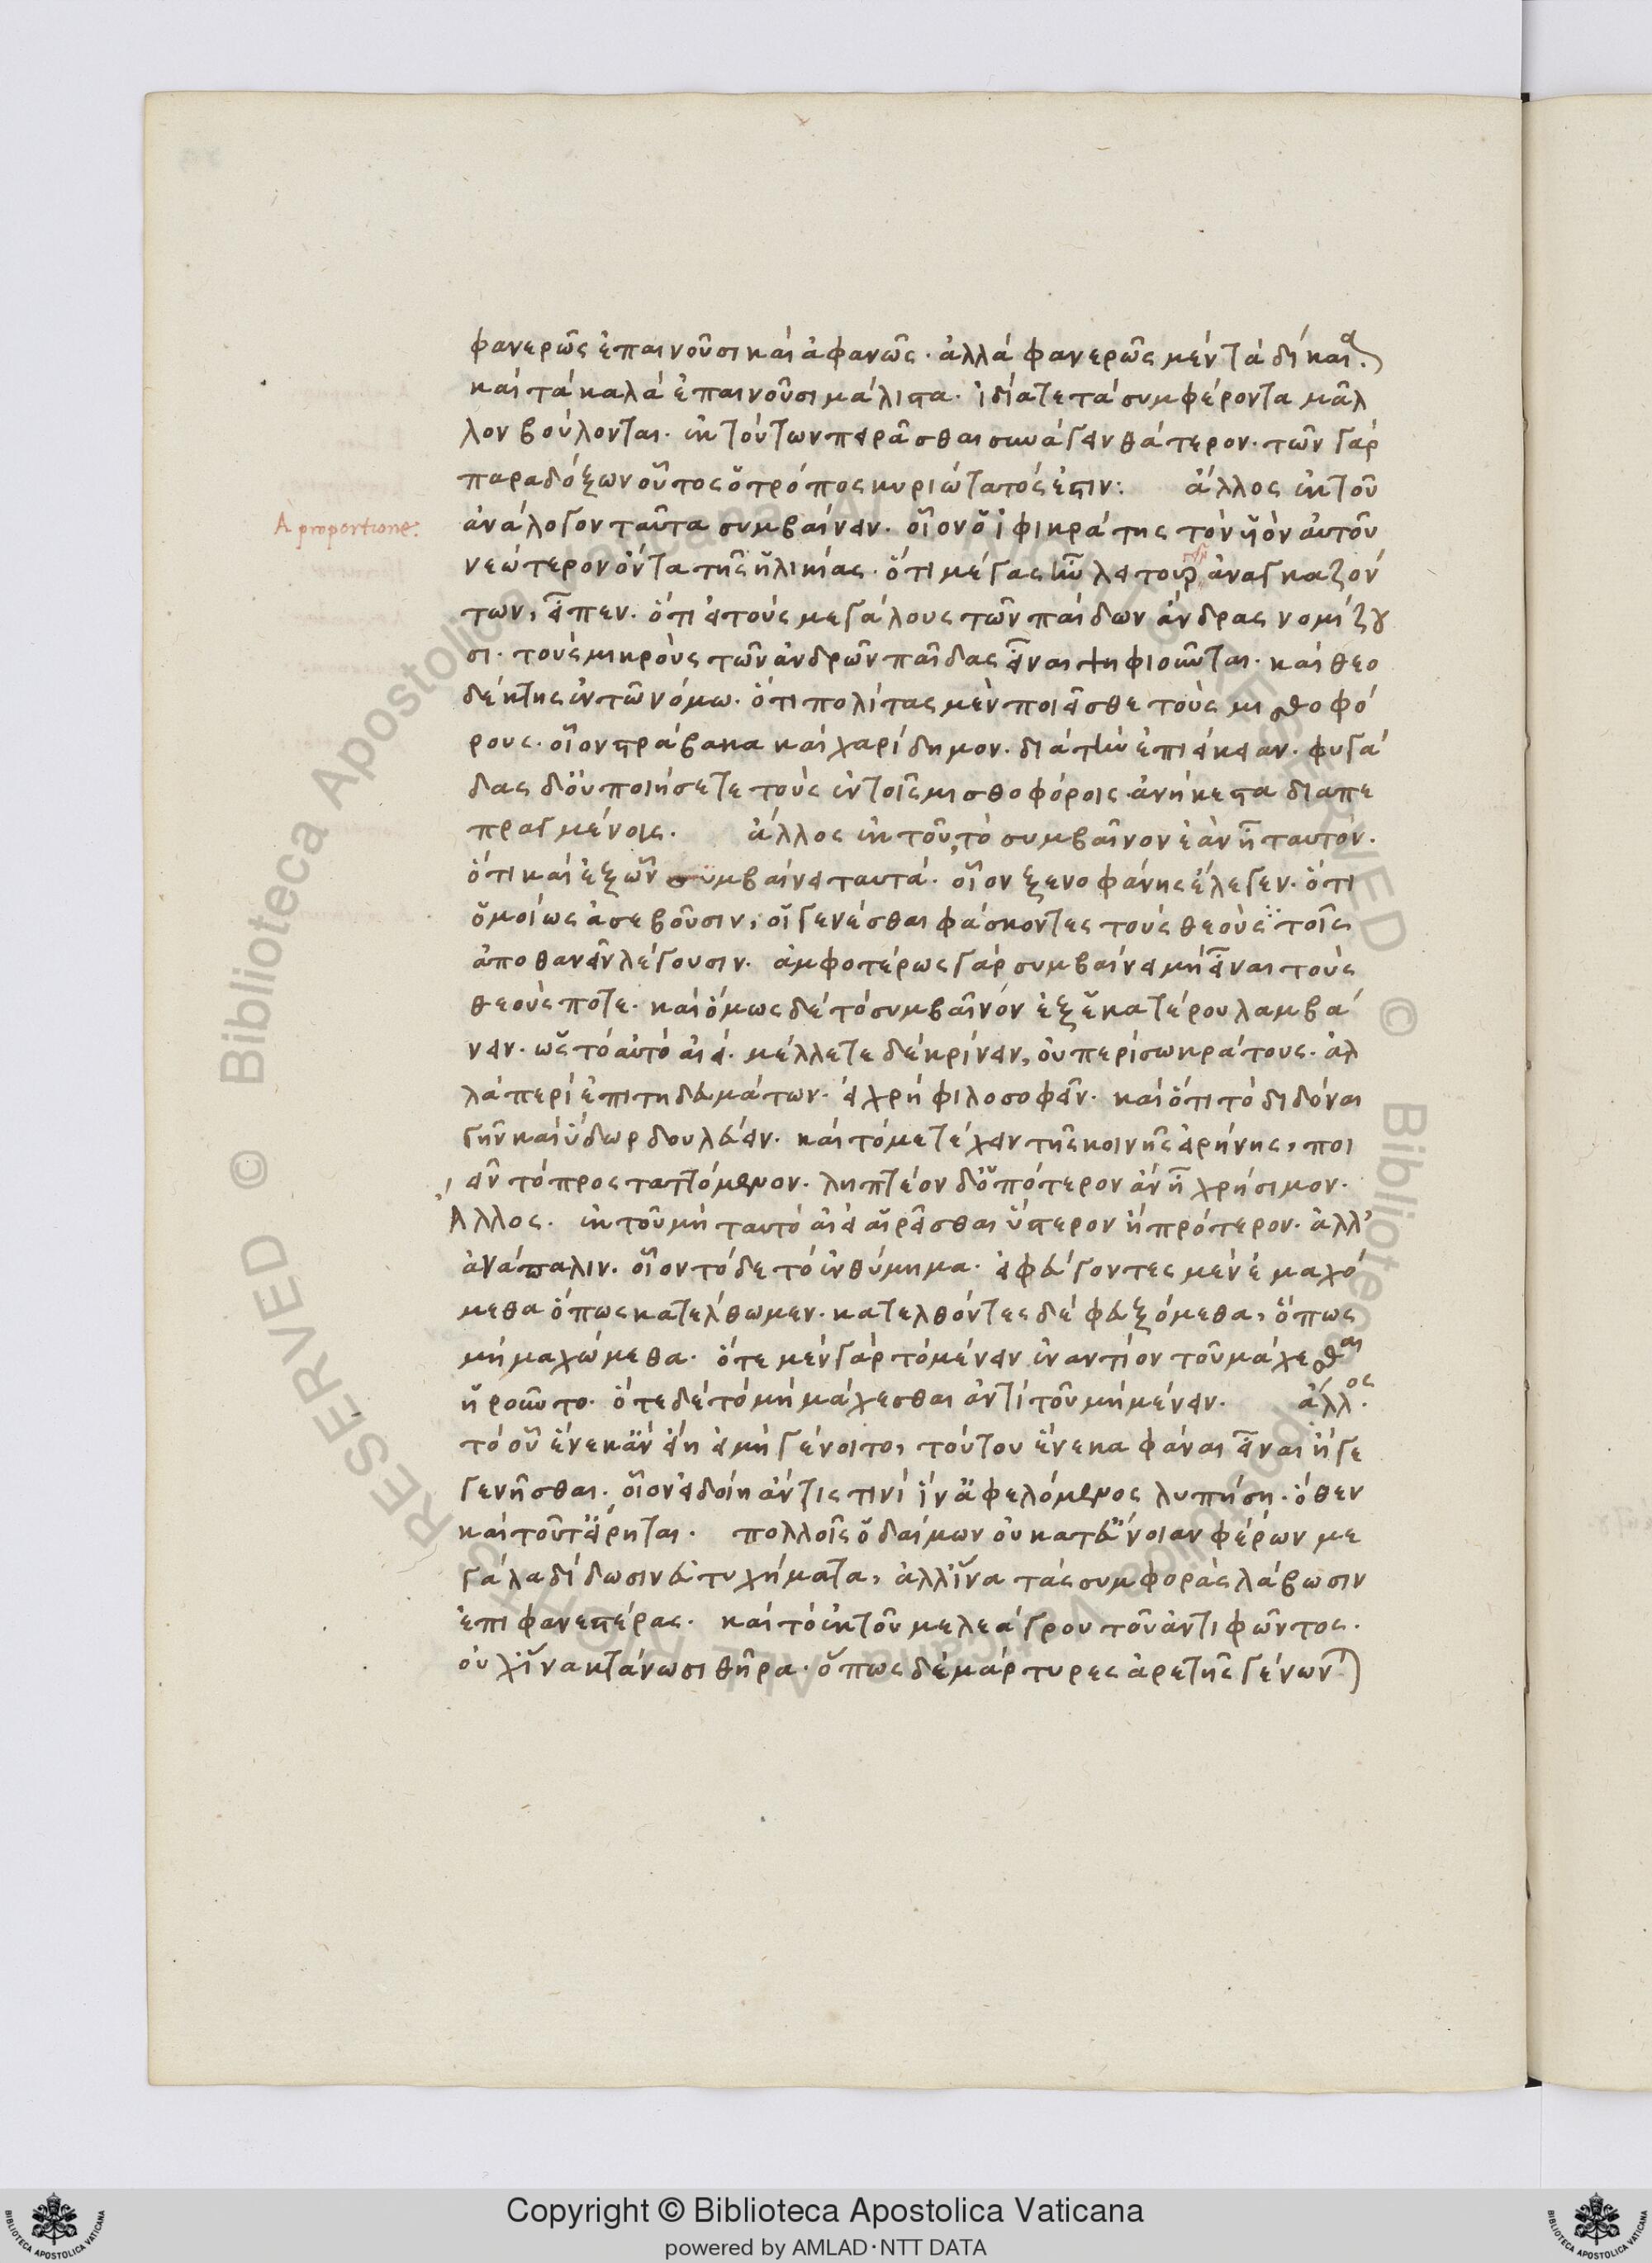 φανερῶς ἐπαινοῦσι καὶ ἀφανῶς. ἀλλὰ φανερῶς μὲν τὰ δίκαια
καὶ τὰ καλὰ ἐπαινοῦσι μάλιστα. ἰδίᾳ τε τὰ συμφέροντα μᾶλ
λον βούλονται. ἐκ τούτων πειρᾶσθαι συνάγειν θάτερον. τῶν γὰρ
παραδόξων οὗτος ὁ τρόπος κυριώτατός ἐστιν: ἄλλος ἐκ τοῦ
A proportione.
ἀνάλογον ταῦτα συμβαίνειν. οἷον ὁ ἰφικράτης τὸν υἱὸν αὐτοῦ
νεώτερον ὄντα τῆς ἡλικίας. ὅτι μέγας ἦν λειτουρ ἀναγκαζόν
των, εἶπεν. ὅτι εἰ τοὺς μεγάλους τῶν παίδων ἄνδρας νομίζου
σι. τοὺς μικροὺς τῶν ἀνδρῶν παῖδας εἶναι ψηφιοῦνται. καὶ θεο
δέκτης ἐν τῶ νόμω. ὅτι πολίτας μὲν ποιεῖσθε τοὺς μισθοφό
ρους. οἷον στράβακα καὶ χαρίδημον. διὰ τὴν ἐπιείκειαν. φυγά
δας δ' οὐ ποιήσετε τοὺς ἐν τοῖς μισθοφόροις ἀνήκεστα διαπε
πραγμένοις. ἄλλος ἐκ τοῦ, τὸ συμβαῖνον ἐὰν ῆ ταυτόν.
ὅτι καὶ ἐξ ὧν συμβαίνει ταυτά. οἷον ξενοφάνης ἔλεγεν. ὅτι
ὁμοίως ἀσεβοῦσιν, οἱ γενέσθαι φάσκοντες τοὺς θεοὺς τοῖς
ἀποθανεῖν λέγουσιν. ἀμφοτέρως γὰρ συμβαίνει μὴ εἶναι τοὺς
θεούς ποτε. καὶ ὅμως δὲ τὸ συμβαῖνον ἐξ ἑκατέρου λαμβά
νειν. ὡς τὸ αὐτὸ ἀεί. μέλλετε δὲ κρίνειν, οὐ περὶ σωκράτους. ἀλ
λὰ περὶ ἐπιτηδευμάτων. εἰ χρὴ φιλοσοφεῖν. καὶ ὅτι τὸ διδόναι
γῆν καὶ ὕδωρ δουλεύειν. καὶ τὸ μετέχειν τῆς κοινῆς εἰρήνης, ποι
εῖν τὸ προσταττόμενον. ληπτέον δ' ὁπότερον ἂν ῆ χρήσιμον.
Ἄλλος. ἐκ τοῦ μὴ ταυτὸ ἀεὶ αἱρεῖσθαι ὕστερον ἢ πρότερον. ἀλλ'
ἀνάπαλιν. οἷον τόδε τὸ ἐνθύμημα. εἰ φεύγοντες μὲν ἐμαχό
μεθα ὅπως κατέλθωμεν. κατελθόντες δὲ φευξόμεθα, ὅπως
μὴ μαχώμεθα. ὅτε μὲν γὰρ τὸ μένειν ἐναντίον τοῦ μάχεσθαι
ἡροῦντο. ὅτε δὲ τὸ μὴ μάχεσθαι ἀντὶ τοῦ μὴ μένειν. ἄλλος.
τὸ οὗ ἕνεκ' ἂν εἴη εἰ μὴ γένοιτο, τούτου ἕνεκα φάναι εἶναι ἢ γε
γενῆσθαι. οἷον εἰ δοίη ἄν τις τινὶ ἵν' ἀφελόμενος λυπήση. ὅθεν
καὶ τοῦτ' εἴρηται. πολλοῖς ὁ δαίμων οὐ κατ' εὔνοιαν φέρων με
γάλα δίδωσιν εὐτυχήματα, ἀλλ' ἵνα τὰς συμφορὰς λάβωσιν
ἐπιφανεστέρας. καὶ τὸ ἐκ τοῦ μελεάγρου τοῦ ἀντιφῶντος.
οὐχ ἵνα κτάνωσι θῆρα. ὅπως δὲ μάρτυρες ἀρετῆς γένωνται
Copyright © Biblioteca Apostolica Vaticana
powered by AMLAD·NTT DATA